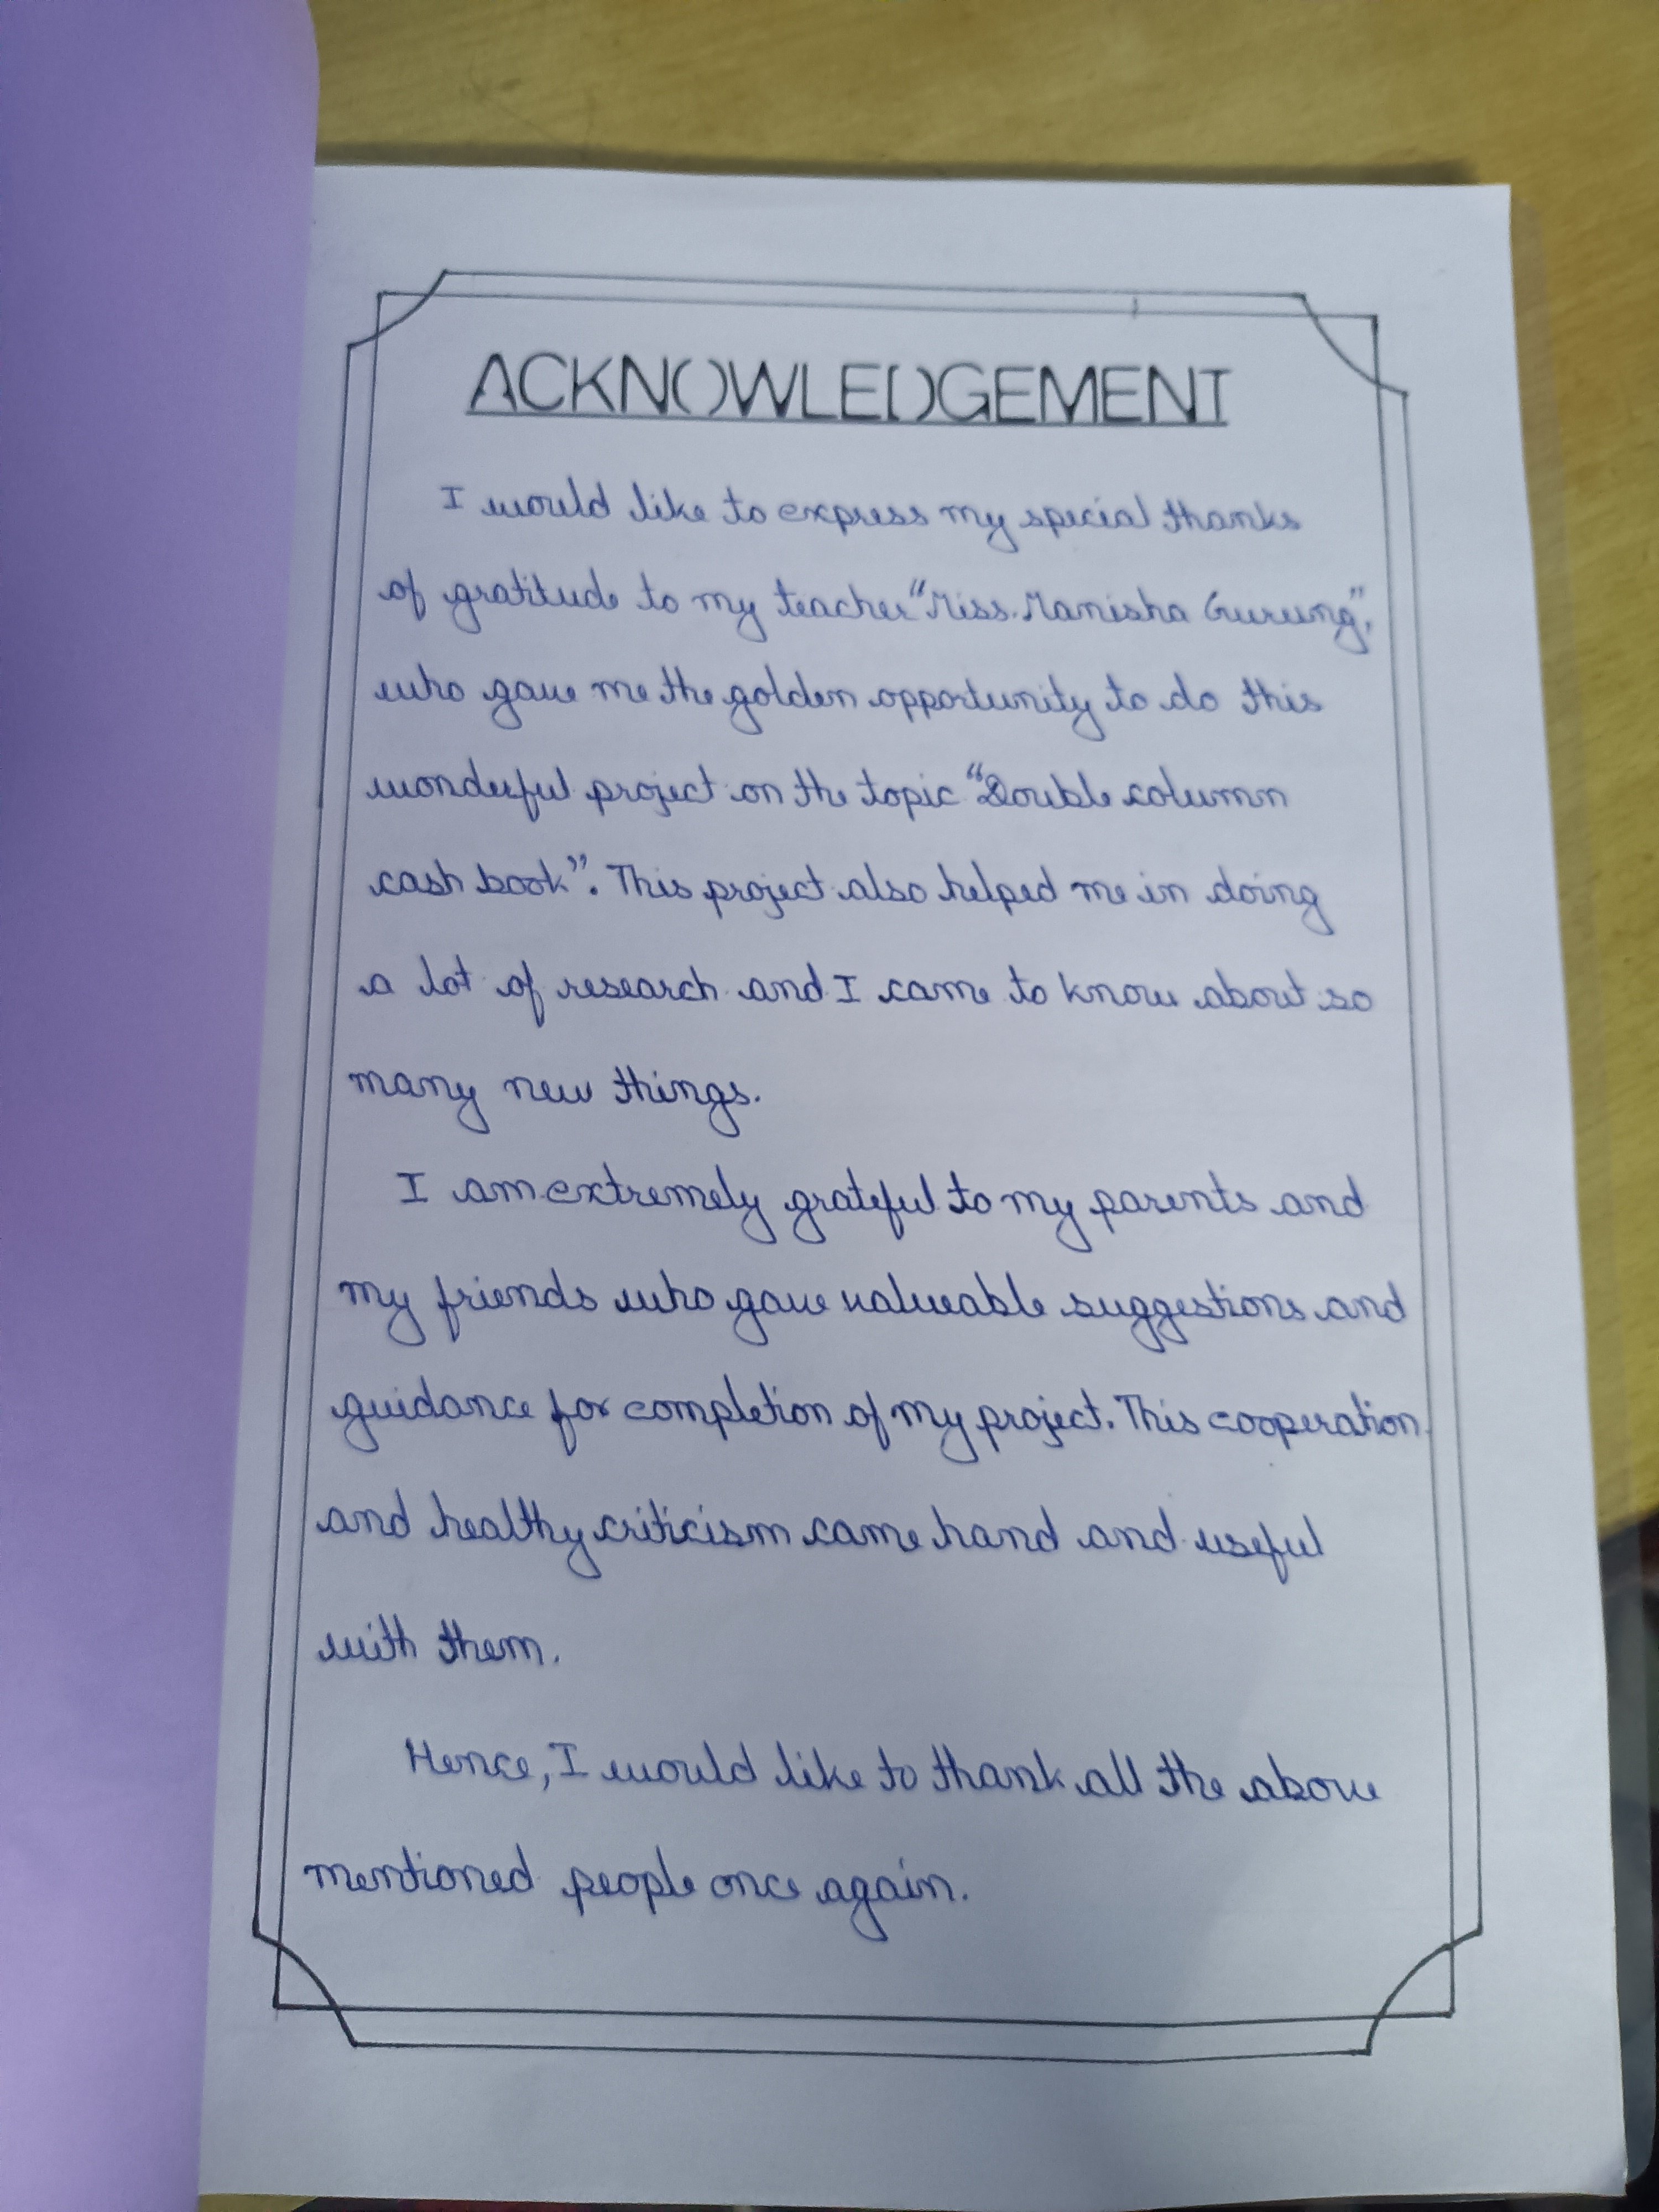 ACKNOWLEDGEMENT
I would like to express my special thanks
of gratitude to my teacher "Miss. Manisha Gurung",
who gave me the golden opportunity to do this
wonderful project on the topic "Double column
cash book". This project also helped me in doing
a lot of research and I came to know about so
many new things.
I am extremely grateful to my parents and
my friends who gave valueable suggestions and
guidance for completion of my project. This cooperation
and healthy criticism came hand and useful
with them.
Hence, I would like to thank all the above
mentioned people once again.